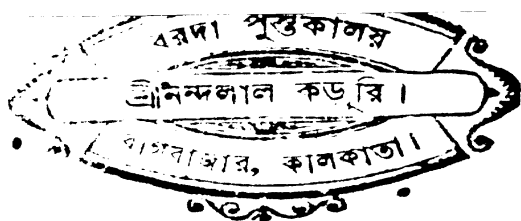 বরদা পুস্তকালয়
শ্রীনন্দলাল কড়ুরি।
বাগবাজার, কালকাতা।